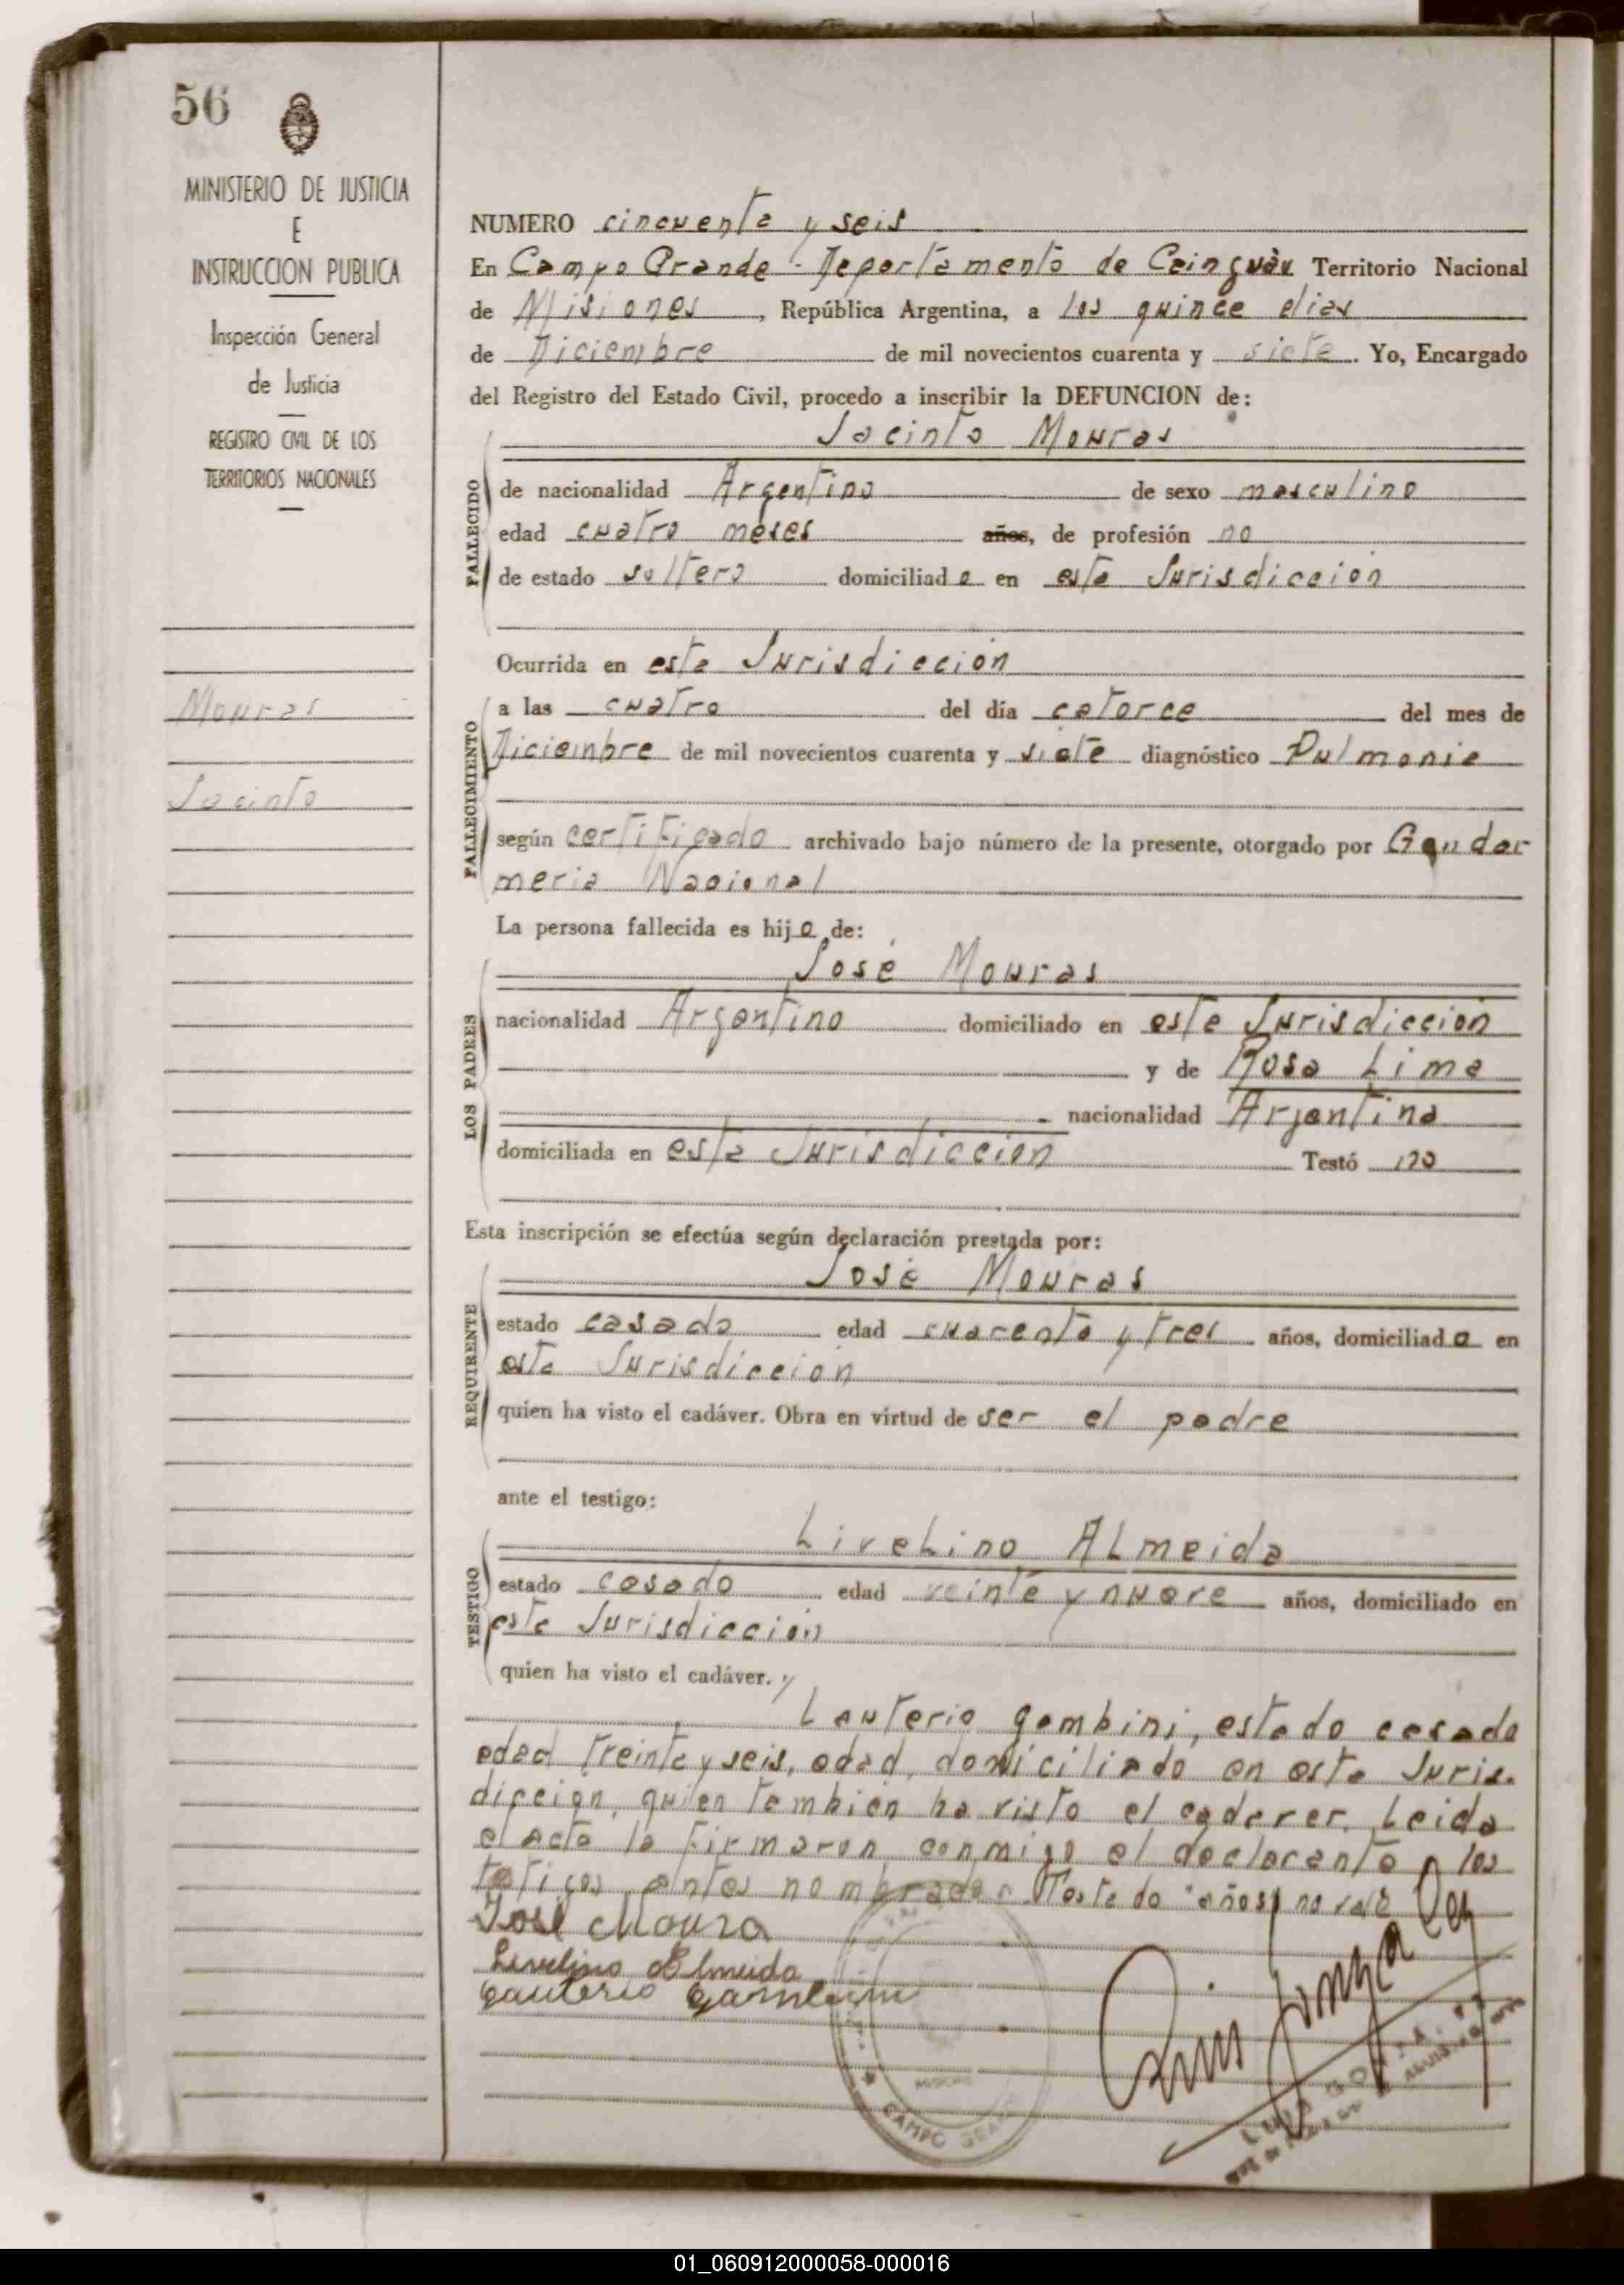 56
MINISTERIO DE JUSTICIA
E
INSTRUCCION PUBLICA
Inspección General
de Justicia
REGISTRO CIVIL DE LOS
TERRITORIOS NACIONALES
Mouras
Jacinto
NUMERO cincuenta y seis
En Campo Grande - Departamento de Cainguás Territorio Nacional
de Misiones, República Argentina, a los quince dias
de Diciembre de mil novecientos cuarenta y siete. Yo, Encargado
del Registro del Estado Civil, procedo a inscribir la DEFUNCION de:
Jacinto Mouras
FALLECIDO
de nacionalidad Argentino de sexo masculino
edad cuatro meses años, de profesión no
de estado soltero domiciliado en esta Jurisdiccion
Ocurrida en esta Jurisdicción
FALLECIMIENTO
a las cuatro del día catorce del mes de
Diciembre de mil novecientos cuarenta y siete diagnóstico Pulmonia
según certificado archivado bajo número de la presente, otorgado por Gendar
meria Nacional
La persona fallecida es hijo de:
LOS PADRES
José Mouras
nacionalidad Argentino domiciliado en esta Jurisdicción
y de Rosa Lima
nacionalidad Argentina
domiciliada en esta Jurisdiccion Testó no
Esta inscripción se efectúa según declaración prestada por:
REQUIRENTE
José Mouras
estado casado edad cuarenta y tres años, domiciliado en
esta Jurisdicción
quien ha visto el cadáver. Obra en virtud de ser el padre
ante el testigo:
TESTIGO
LiveLino ALmeida
estado casado edad veinte y nueve años, domiciliado en
esta Jurisdicción
quien ha visto el cadáver. y
Lauterio Gambini, estado casado
edad treinta y seis, edad, domiciliado en esta Juris-
diccion, quien tambien ha visto el cadaver. Leida
el acta la firmaron conmigo el declarante y los
testigos antes nombrados Testado "años" no vale
José Moura
Livelino Almeida
Gauterio Gambini
CAMPO GRANDE
01_060912000058-000016